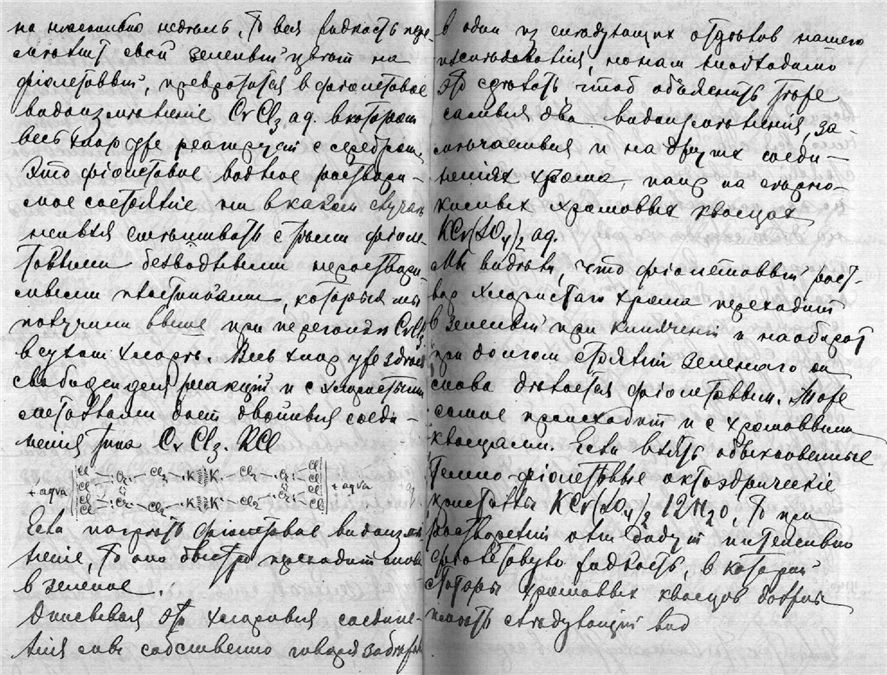 на несколько недель, то вся жидкость пере-
мѣнитъ свой зеленый цвѣтъ на
фіолетовый, превратится в фіолетовое
видоизмѣненіе CrCl₃ aq. в которомъ
весь хлор уже реагирует с серебромъ.
Это фіолетовое водное раствори-
мое состояніе ни в каком случаѣ
нельзя смѣшивать с тѣми фіоле-
товыми безводными нераствори-
мыми пластинками, которыя мы
получили выше при перегонкѣ CrCl₃
в сухом хлорѣ. Весь хлор уже здѣсь
свободен для реакцій и с хлористыми
металлами дает двойныя соеди-
ненія типа CrCl₃.KCl
+ aqva Cl Cl Cr Cl₂ K K Cl₂ Cr Cl Cl + aqva
Cl Cl Cr Cl₂ K K Cl₂ Cr Cl Cl
Если нагрѣть фіолетовое видоизмѣ-
неніе, то оно быстро переходит снова
в зеленое.
Описывая эти хлоровыя соедине-
нія мы собственно говоря забѣжали
в один из слѣдующих отдѣлов нашего
изслѣдованія, но нам необходимо
это сдѣлать чтоб объяснить тѣже
самыя два видоизмѣненія, за-
мѣчаемыя и на других соеди-
неніях хрома, напр на сѣрно-
кислых хромовых квасцах
KCr(SO₄)₂ aq.
Мы видѣли, что фіолетовый раст-
вор хлористаго хрома переходит
в зеленый при кипяченіи и наоборот
при долгом стояніи зеленаго он
снова дѣлается фіолетовым. Тоже
самое происходит и с хромовыми
квасцами. Если взять обыкновенные
темно-фіолетовые октоэдрическіе
кристаллы KCr(SO₄)₂ 12H₂O, то при
раствореніи они дадут интенсивно
фіолетовую жидкость, в которой
растворы хромовых квасцов должны
имѣть слѣдующій вид